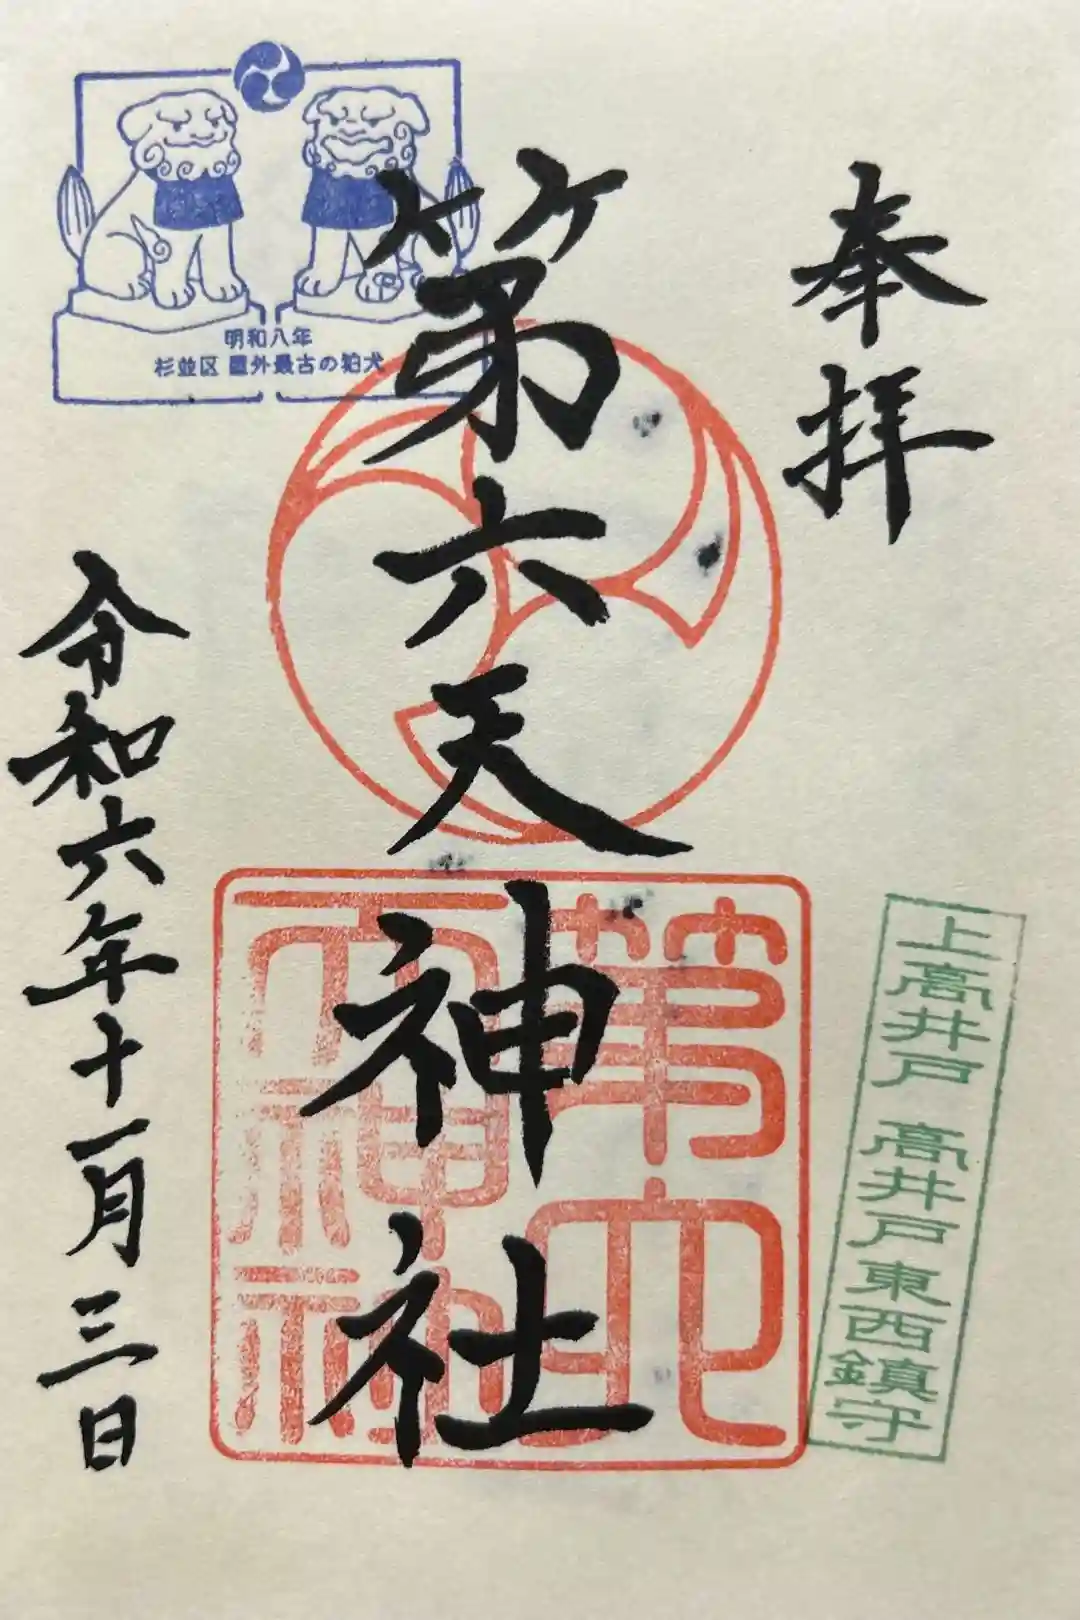 奉拝
上高井戸 高井戸東西鎮守
第六天神社
第六
天神社
明和八年
杉並区 屋外最古の狛犬
令和六年十一月三日